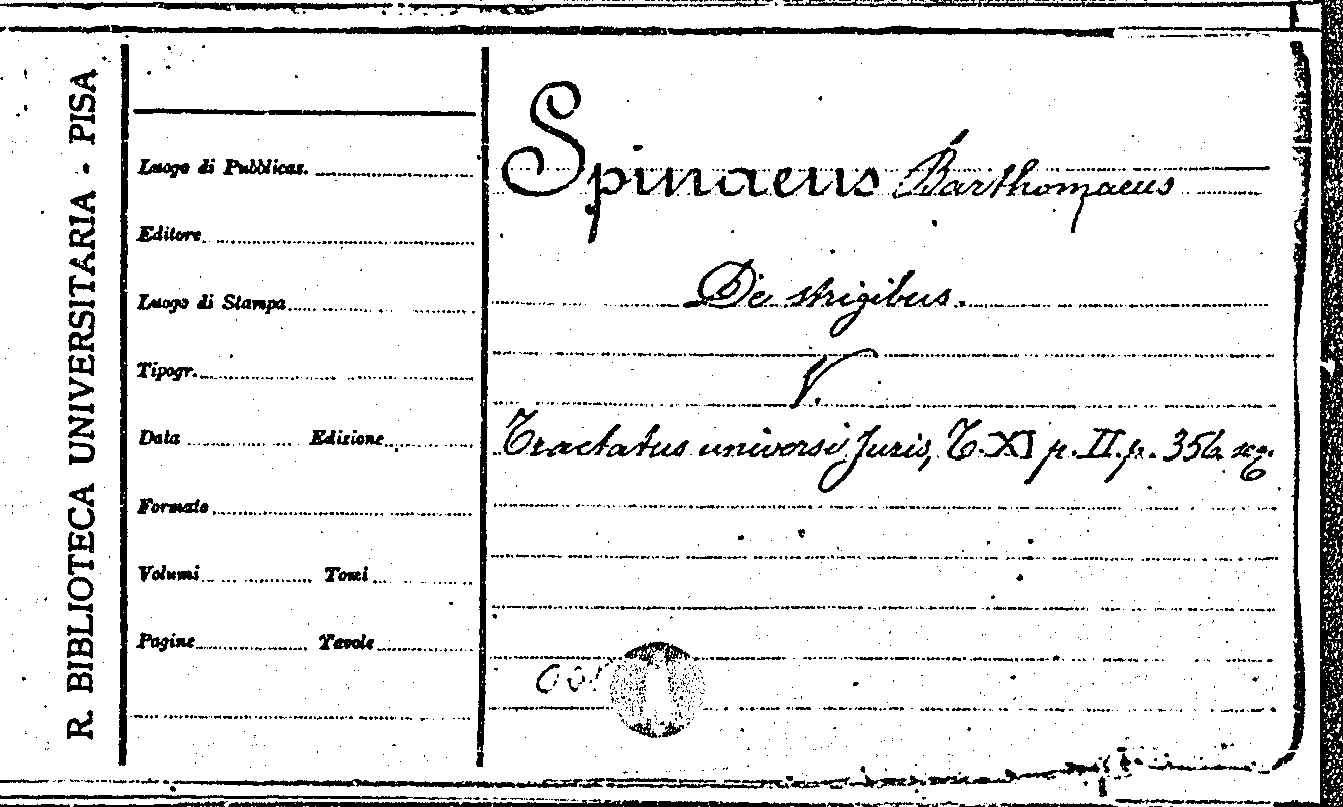 R. BIBLIOTECA UNIVERSITARIA - PISA
Luogo di Pubblicaz.
Editore
Luogo di Stampa
Tipogr.
Data Edizione
Formato
Volumi Tomi
Pagine Tavole
Spinaeus Barthomaeus
De strigibus.
V.
Tractatus universi Juris, T. XI p. II. p. 356 seg.